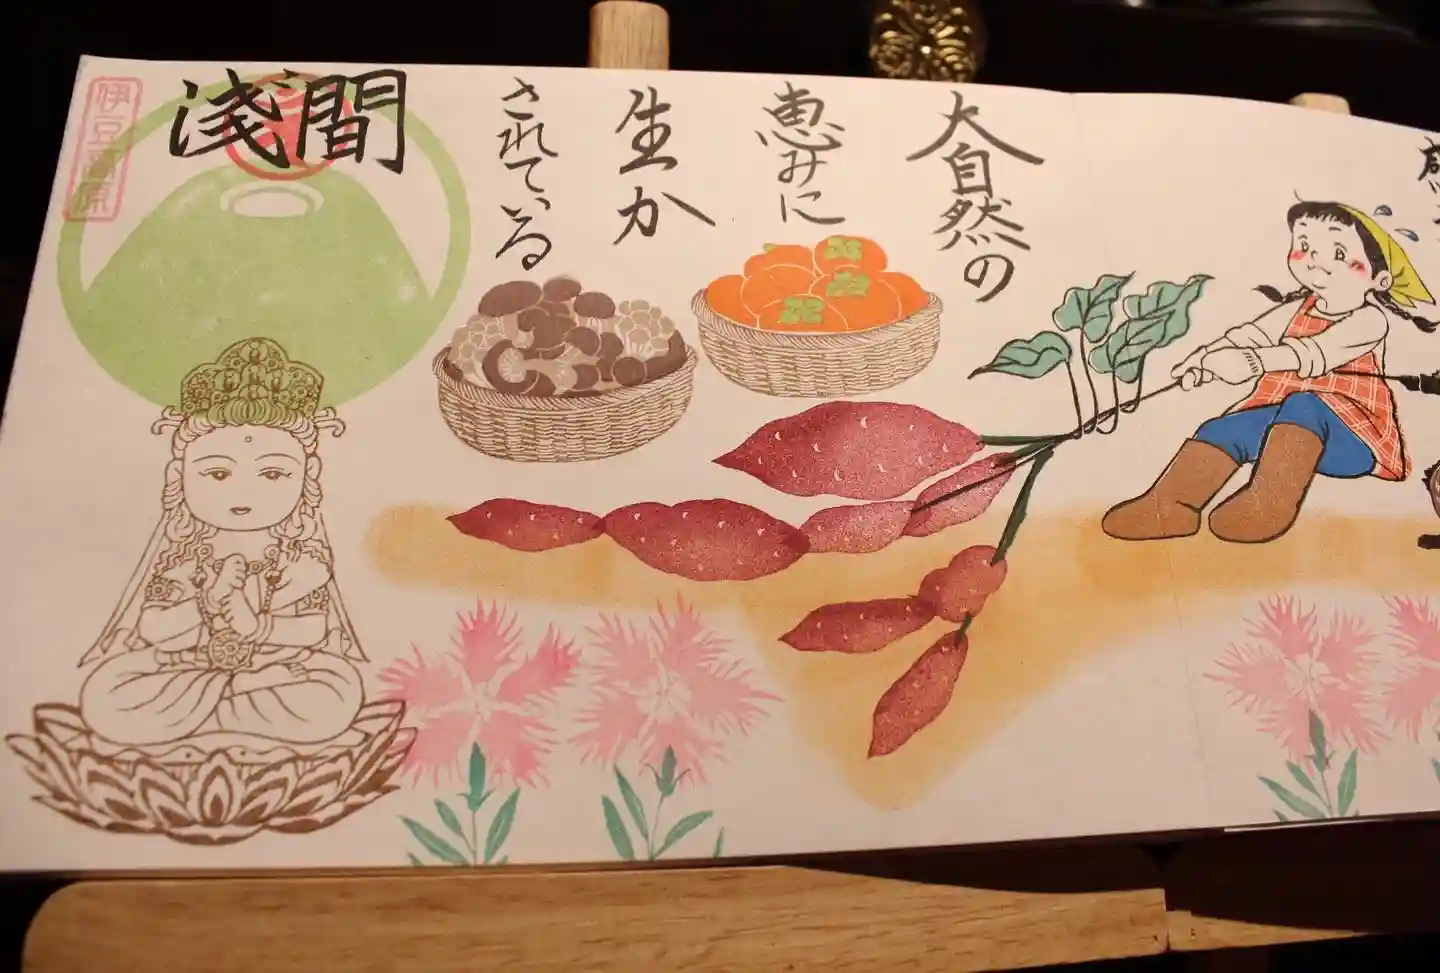 大自然の
恵みに
生か
されている
浅間
伊豆高原